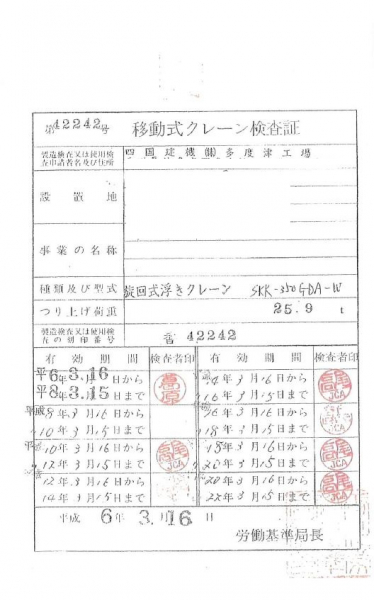 第42242号 移動式クレーン検査証
製造検査又は使用検査申請者名及び住所 四国建機(株)多度津工場
設置地
事業の名称
種類及び型式 旋回式浮きクレーン SKR-350GDA-W
つり上げ荷重 25.9 t
製造検査又は使用検査の刻印番号 香 42242
有効期間 検査者印 有効期間 検査者印
平6年3月16日から 14年3月16日から
平8年3月15日まで 16年3月15日まで
平成8年3月16日から 16年3月16日から
10年3月15日まで 18年3月15日まで
10年3月16日から 18年3月16日から 高尾 JCA
12年3月15日まで 20年3月15日まで
12年3月16日から 20年3月16日から 高尾 JCA
14年3月15日まで 22年3月15日まで
平成 6年 3.月16.日
労働基準局長